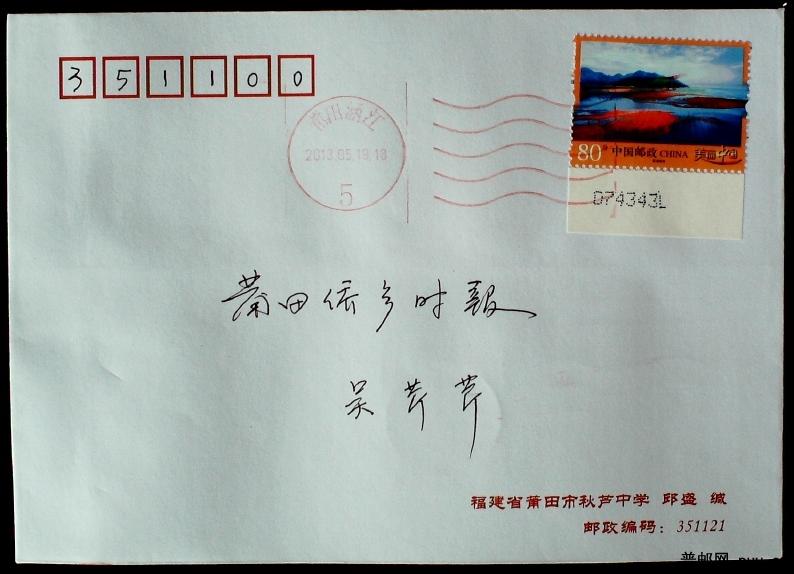 351100
莆田涵江
2013.05.19.18
5
80分 中国邮政 CHINA 美丽中国
074343L
莆田侨乡时報
吴芹芹
福建省莆田市秋芦中学 邱盛 缄
邮政编码：351121
普邮网